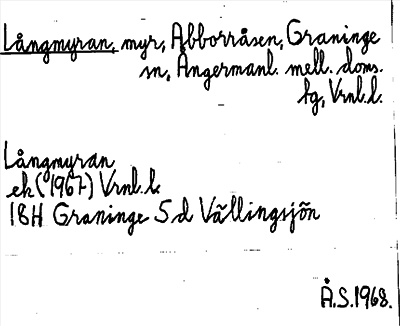 Långmyran, myr, Abborråsen, Graninge
sn, Ångermanl. mell. doms.
hg, Vrnl.l.
Långmyran
ek (1967) Vrnl.l.
18H Graninge 5d Vällingsjön
Å.S.1968.